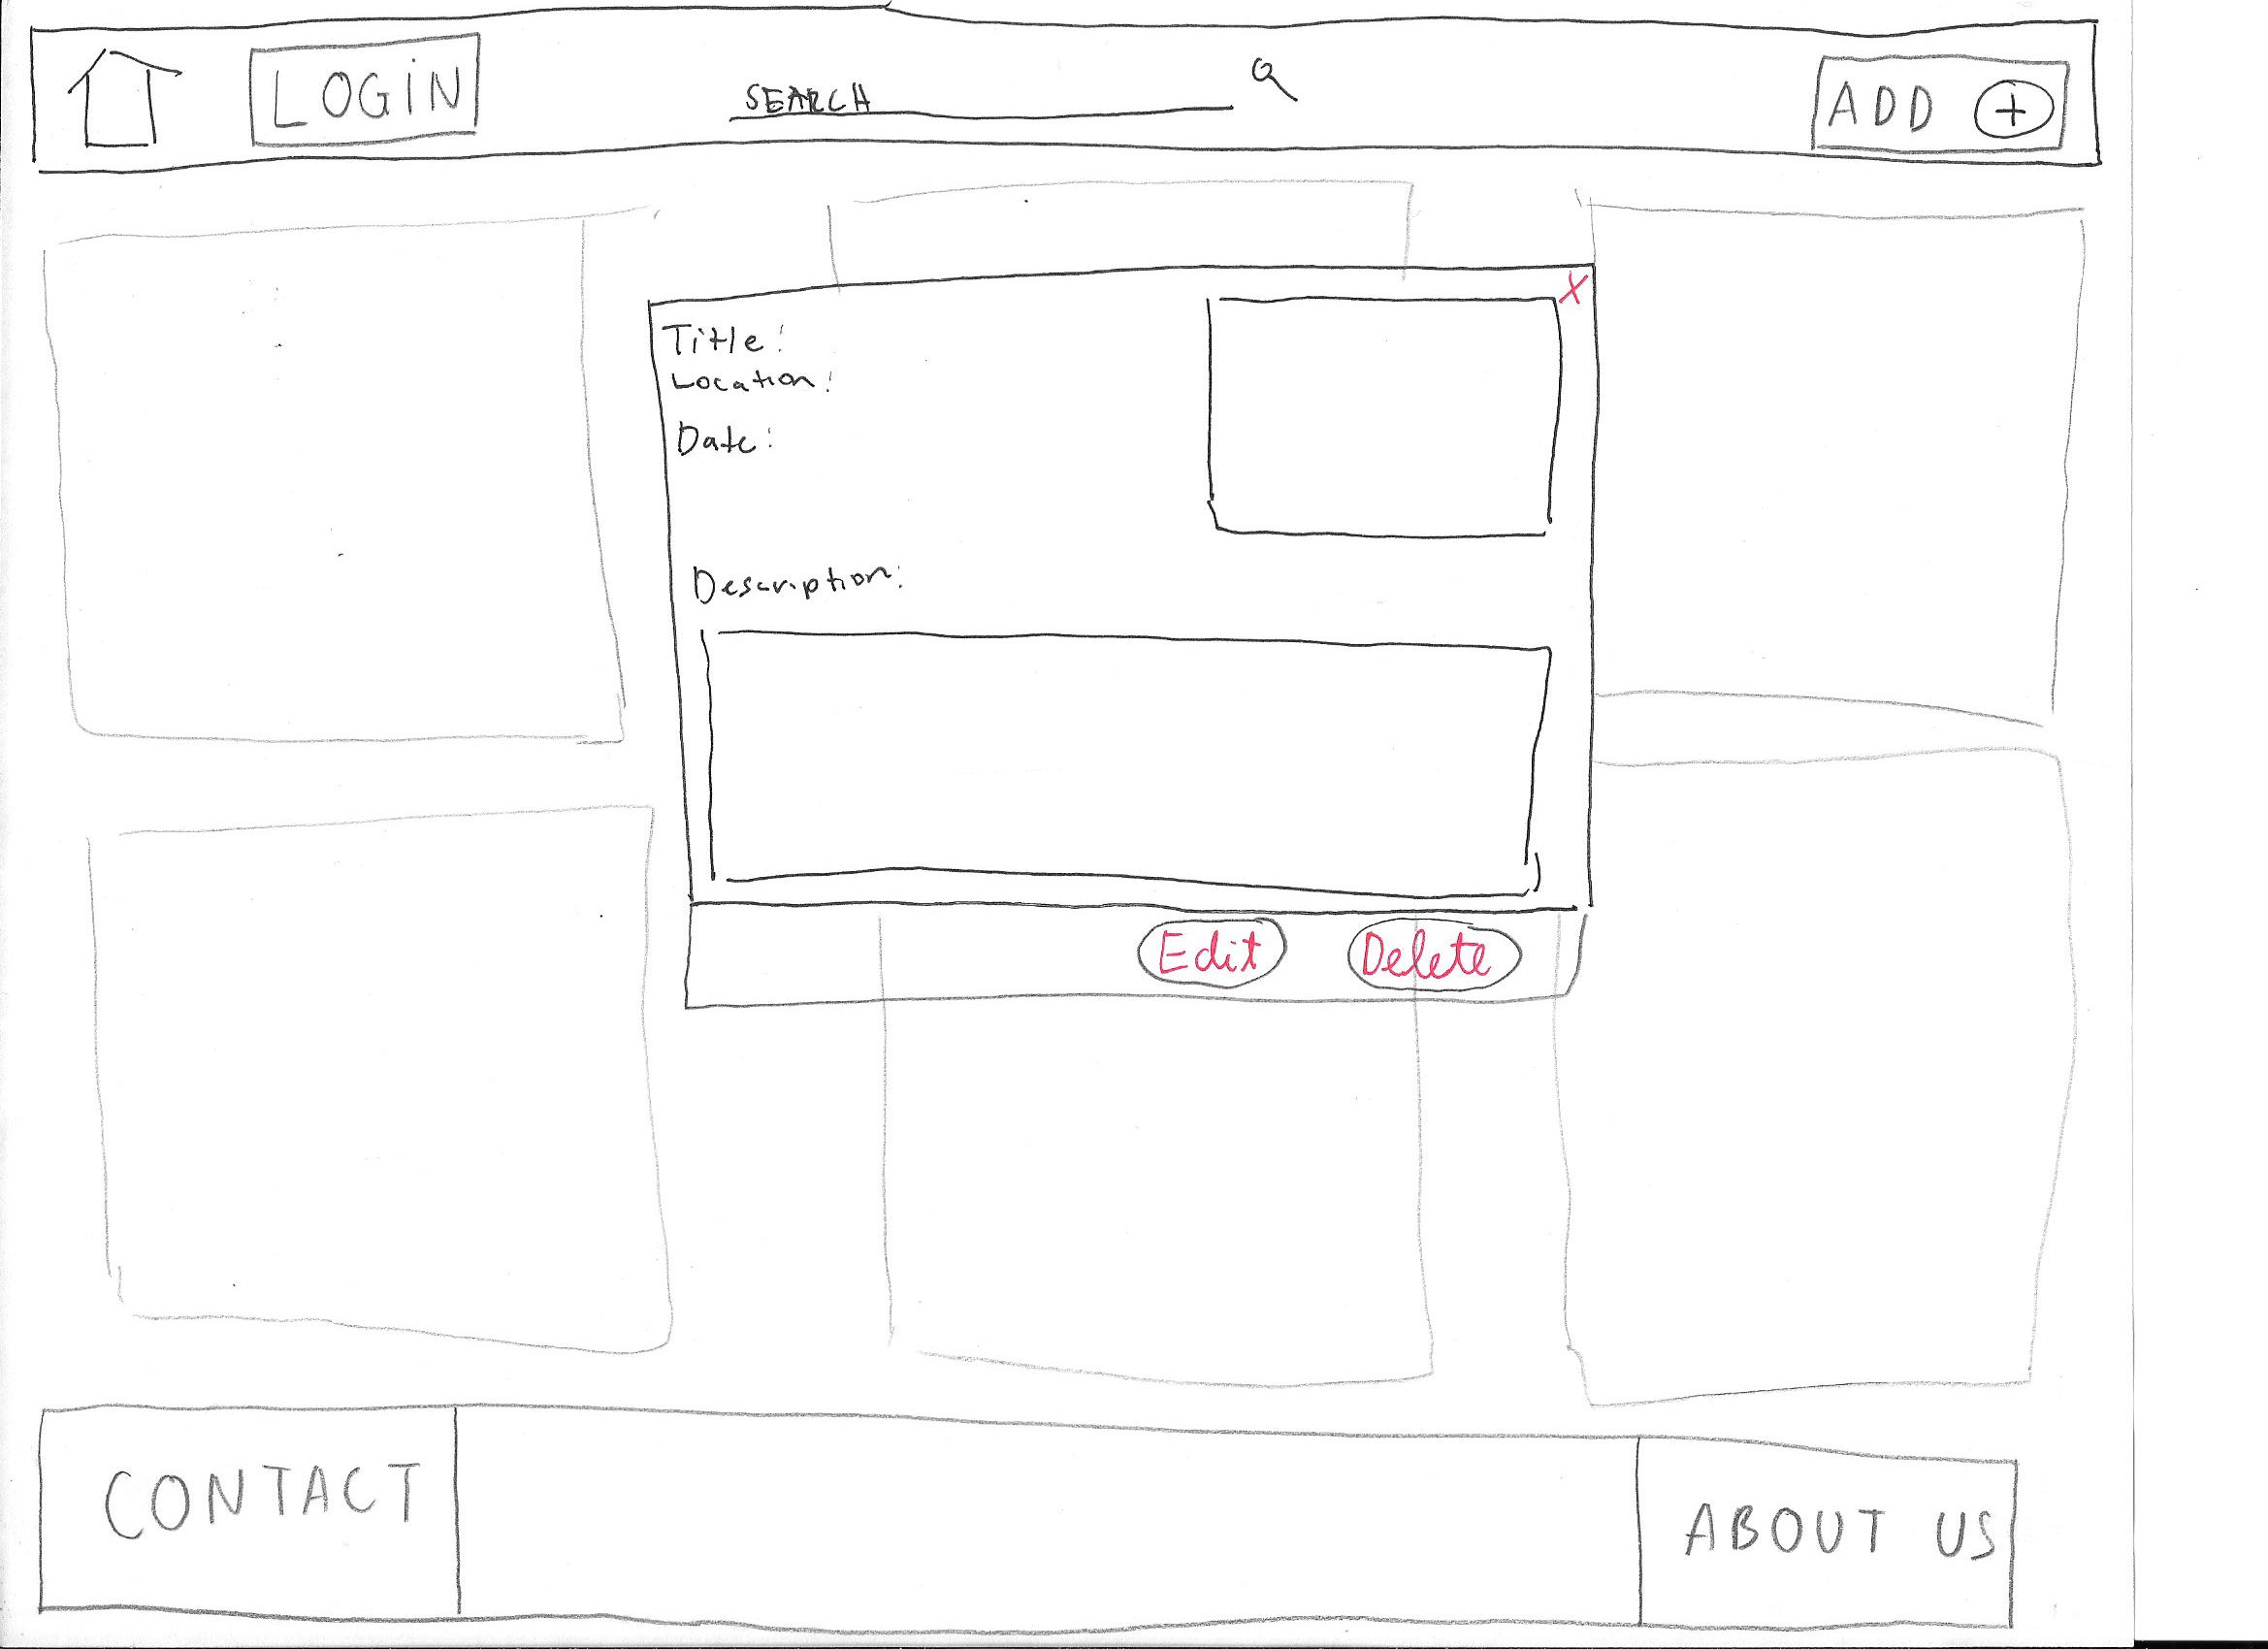 LOGIN
SEARCH
ADD +
X
Title:
Location:
Date:
Description:
Edit
Delete
CONTACT
ABOUT US